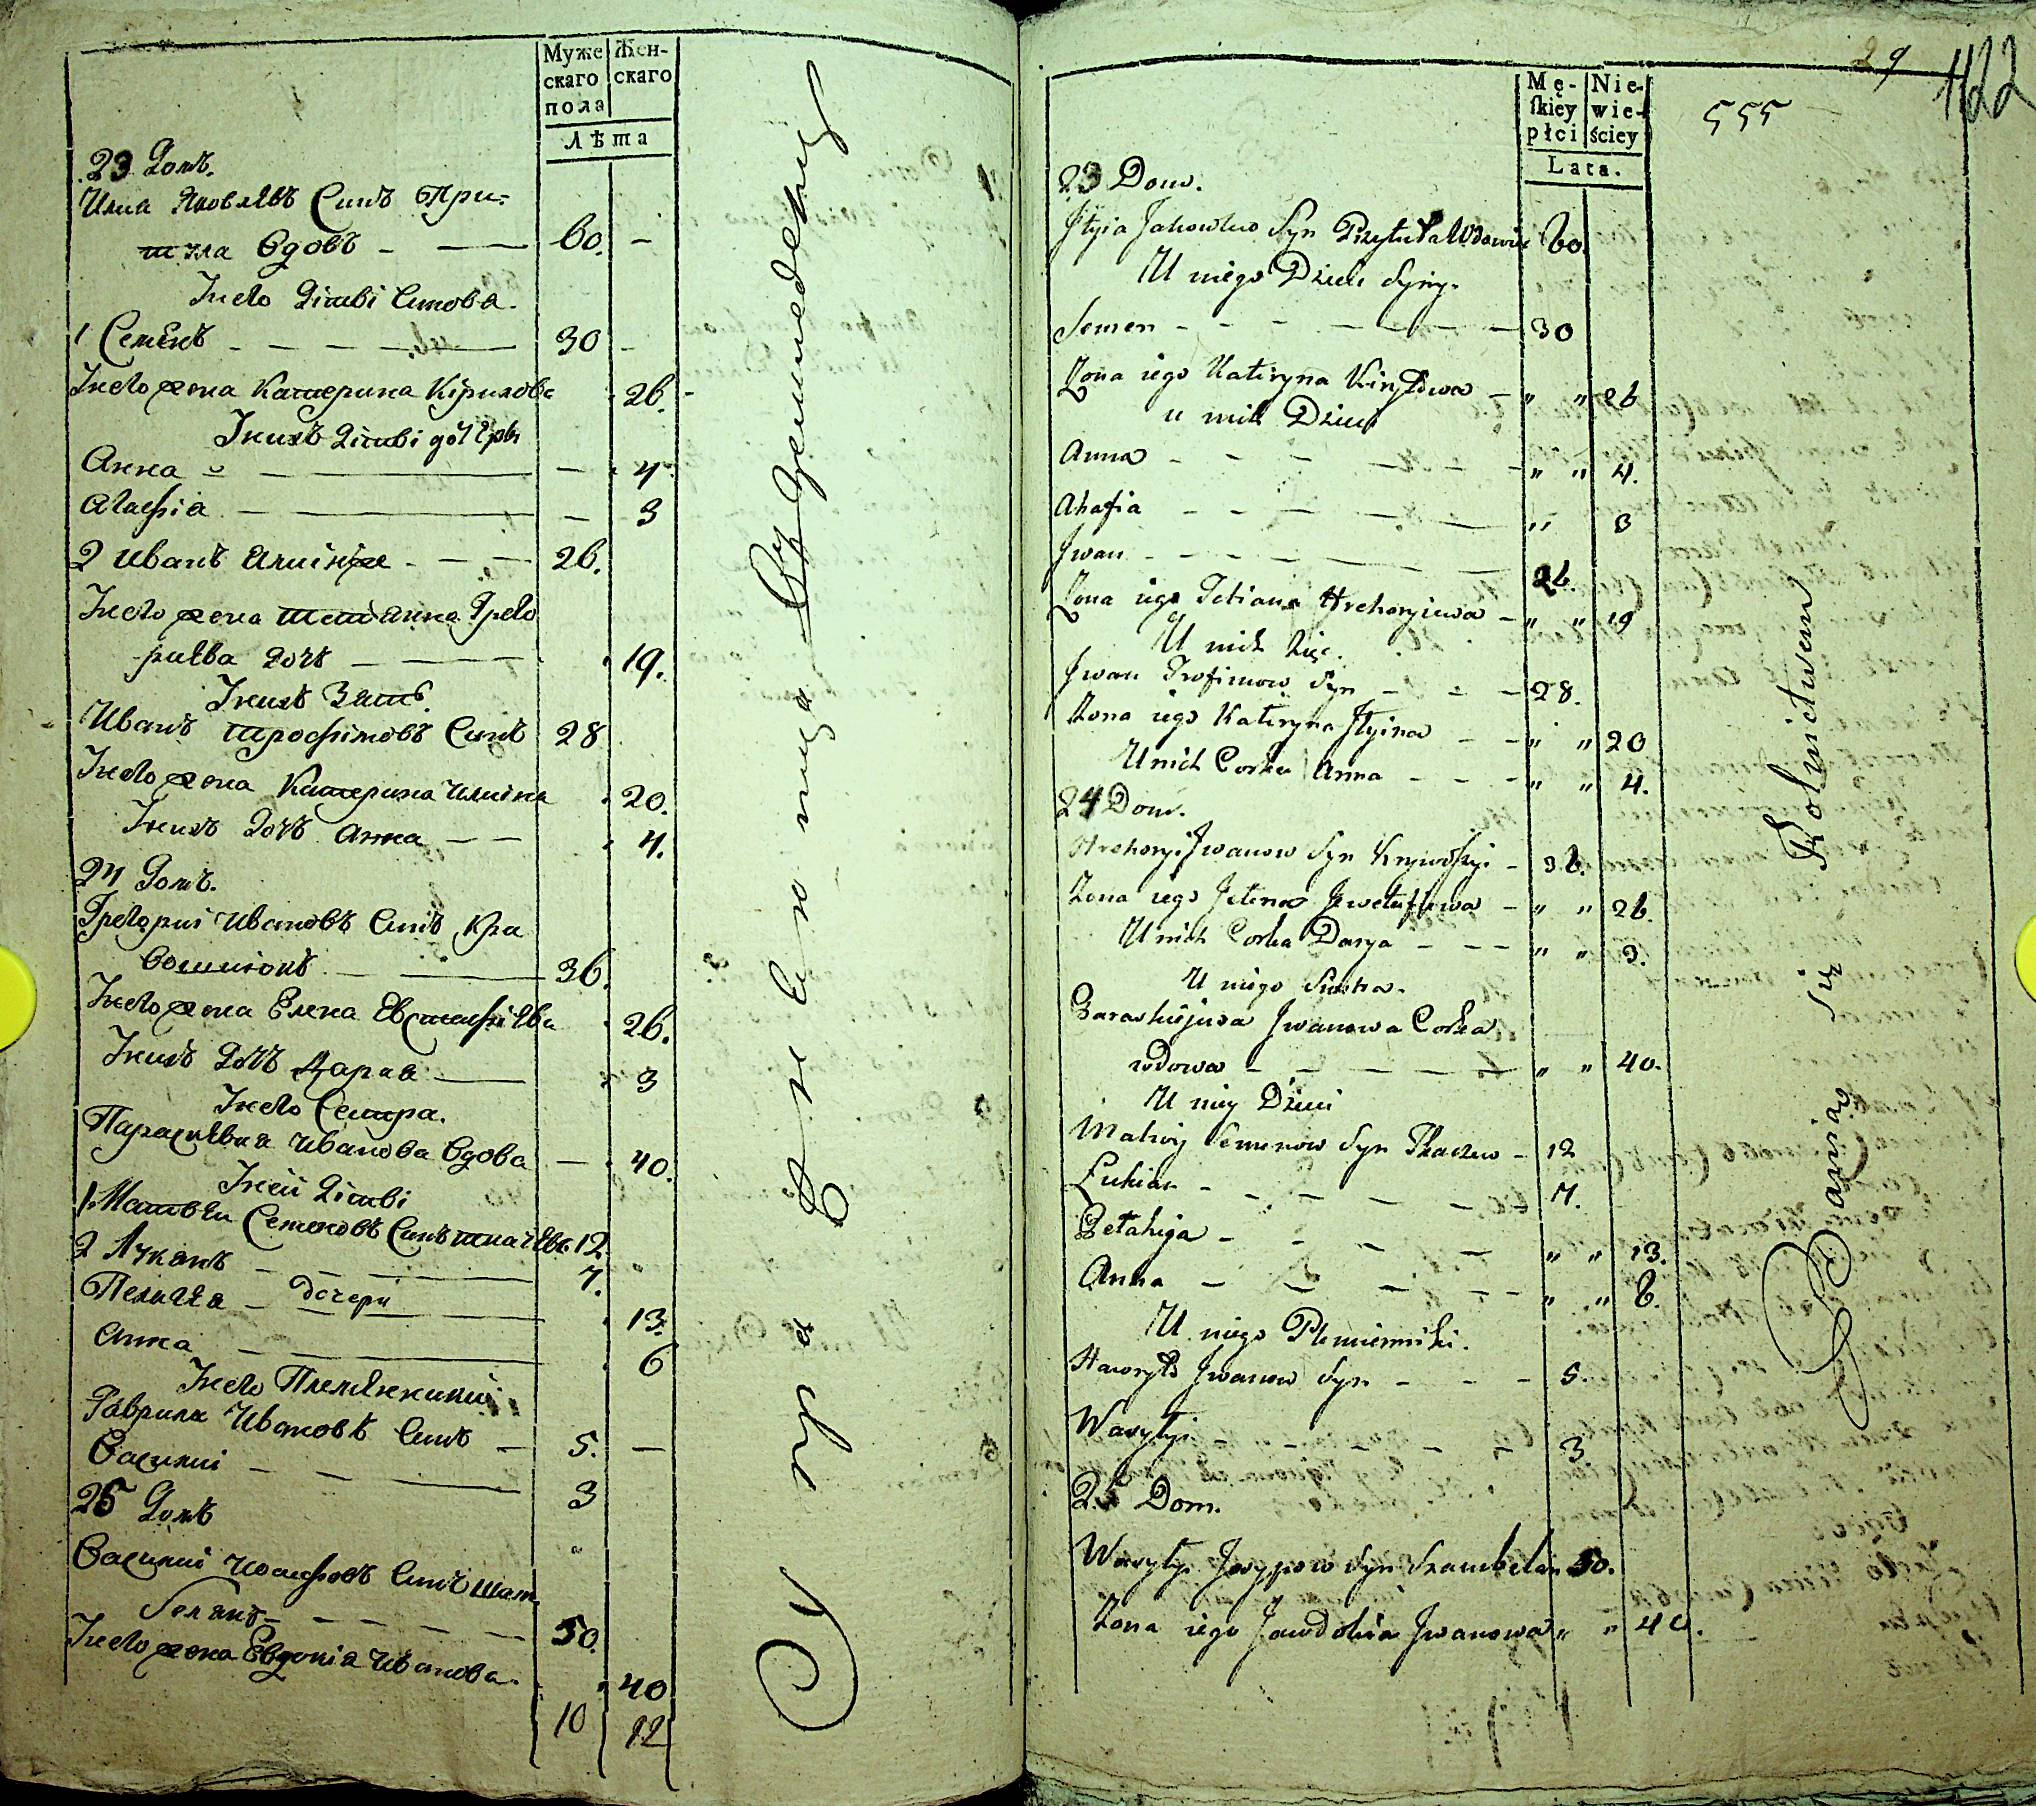 Муже
скаго
пола
Жен-
скаго
Лѣта
23 Домъ.
Илиа Яковлевъ Синъ При-
тула Вдовъ - 60. -
Унево Дѣти Синова.
1 Семенъ - 30 -
Унево жона Катерина Кирилова 26. -
Унихъ Дѣти дочери
Анна - 4
Агафіа - 3
2 Иванъ Илиинъ - 26.
Унево жона Татіанна Григо
риева Дочъ - 19.
Унихъ Зать.
Иванъ Трофимовъ Синъ 28
Унево жона Катерина Илиина 20.
Унихъ Дочъ Анна - 4.
24 Домъ.
Григорий Ивановъ Синъ Кра
36.
Унево жона Елена Евстафиева 26.
Унихъ Дочъ Дария - 3
Унево Сестра.
Параскевия Иванова Вдова - 40.
Уней Дѣти
1 Матвей Семеновъ Синъ Ткачевъ 12.
2 Лукянъ - 7.
Пелагея - дочери 13.
Анна - 6
Унево Племянники
Гаврила Ивановъ Синъ - 5. -
Василий - 3
25 Домъ
Василий Иосифовъ Синъ Шам
белянъ - 50.
Унево жона Евдокия Иванова. 40
10 12
Упражняются Земледелием
29
1122
555
Mę-
skiey
płci
Nie-
wie-
ściey
Lata.
23 Dom.
Jlyia Jakowlew Syn Przytuła Wdowiec 60.
U niego Dzieci Syny.
Semen - 30
Zona iego Kateryna Kiryłowa - " " 26
u nich Dzieci
Anna - " " 4.
Ahafia - " 3
Jwan - 26.
Zona iego Tetiana Hrehoryiewa - " " 19
U nich Zięć.
Jwan Trofimow Syn - 28.
Zona iego Kateryna Jlyina - " " 20
U nich Corka Anna - " " 4.
24 Dom.
Hrehoryi Jwanow Syn - 36.
Zona iego Jelena Jewstafiewa - " " 26.
U nich Corka Darya - " " 3.
U niego Siostra.
Paraskiejuia Jwanowa Corka
wdowa - " " 40.
U niey Dzieci
Matwiy Semenow Syn Tkaczew - 12
Łukian - 7.
Pełahija - " " 13.
Anna - " " 6.
U niego Plemienniki.
Hawryło Jwanow Syn - 5.
Wasylyi - 3.
25 Dom.
Wasylyi Josypow Syn Szambelan 50.
Zona iego Jawdokia Jwanowa " " 40.
Bawią się Rolnictwem